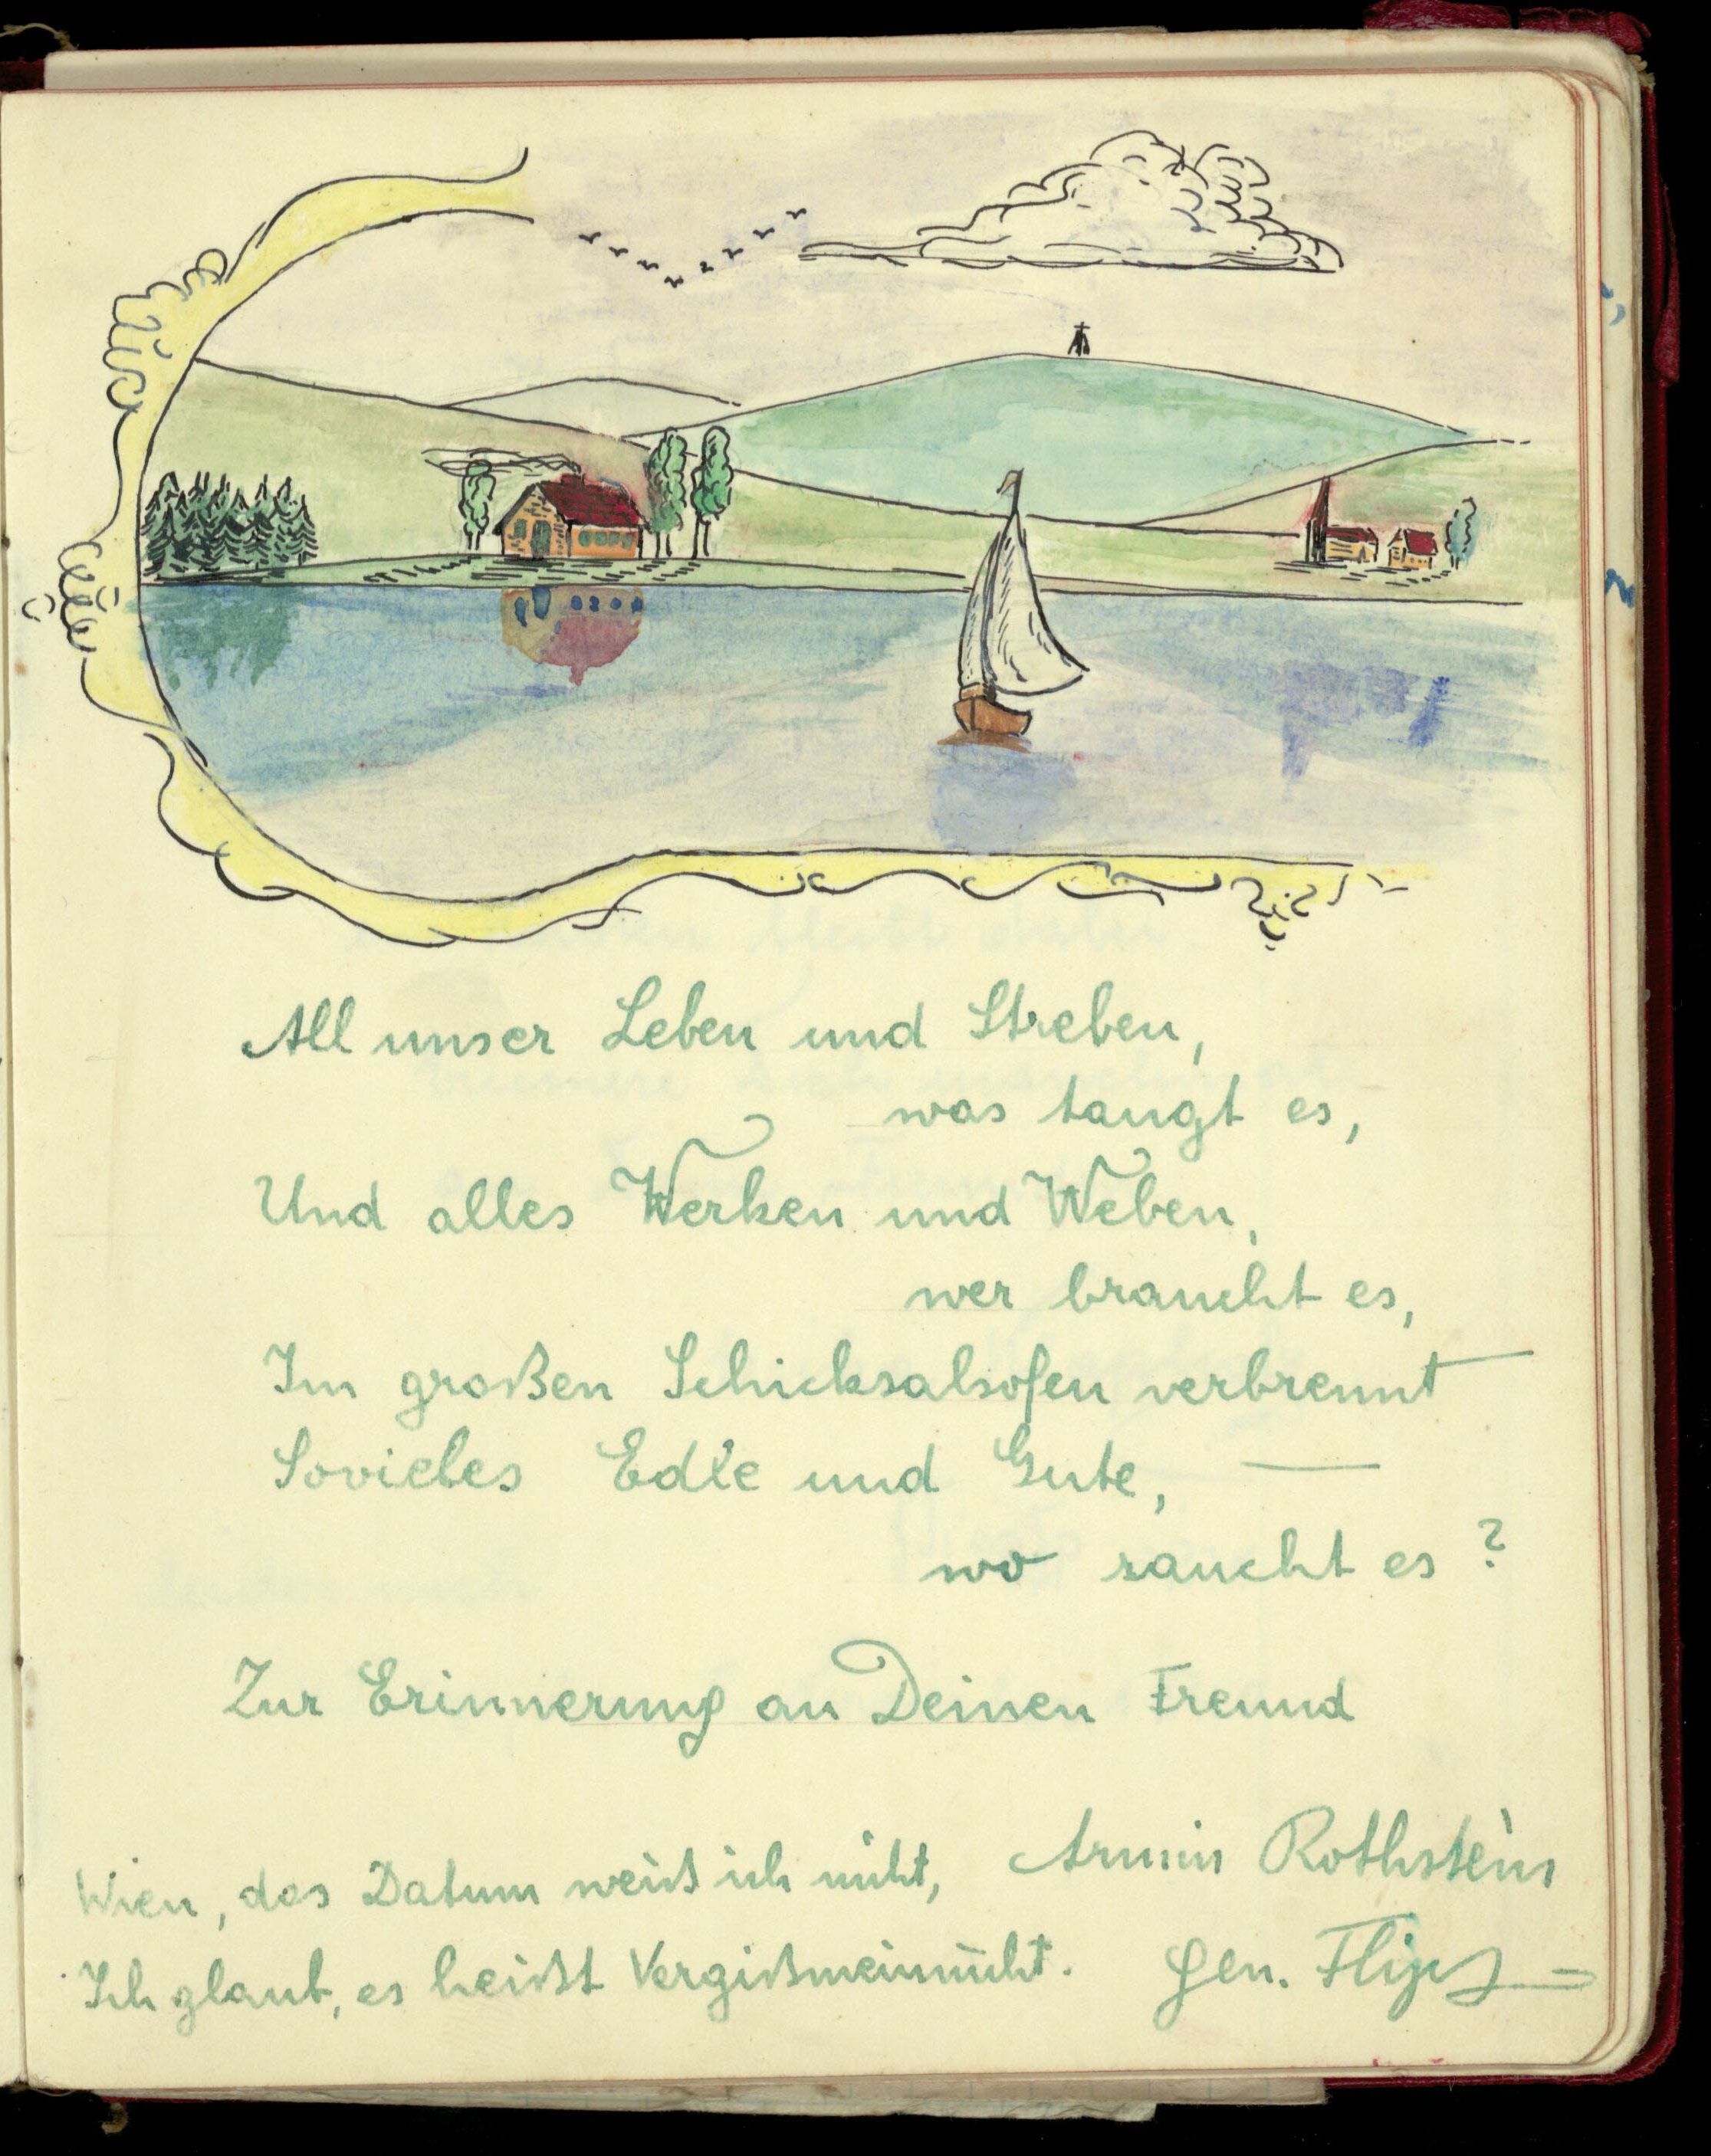 All unser Leben und Streben,
was taugt es,
Und alles Werken und Weben,
wer braucht es,
Im großen Schicksalsofen verbrennt
Sovieles Edle und Gute, —
wo raucht es?
Zur Erinnerung an Deinen Freund
Armin Rothstein
Wien, das Datum weiß ich nicht,
Ich glaub, es heißt Vergißmeinnicht.
Gen.